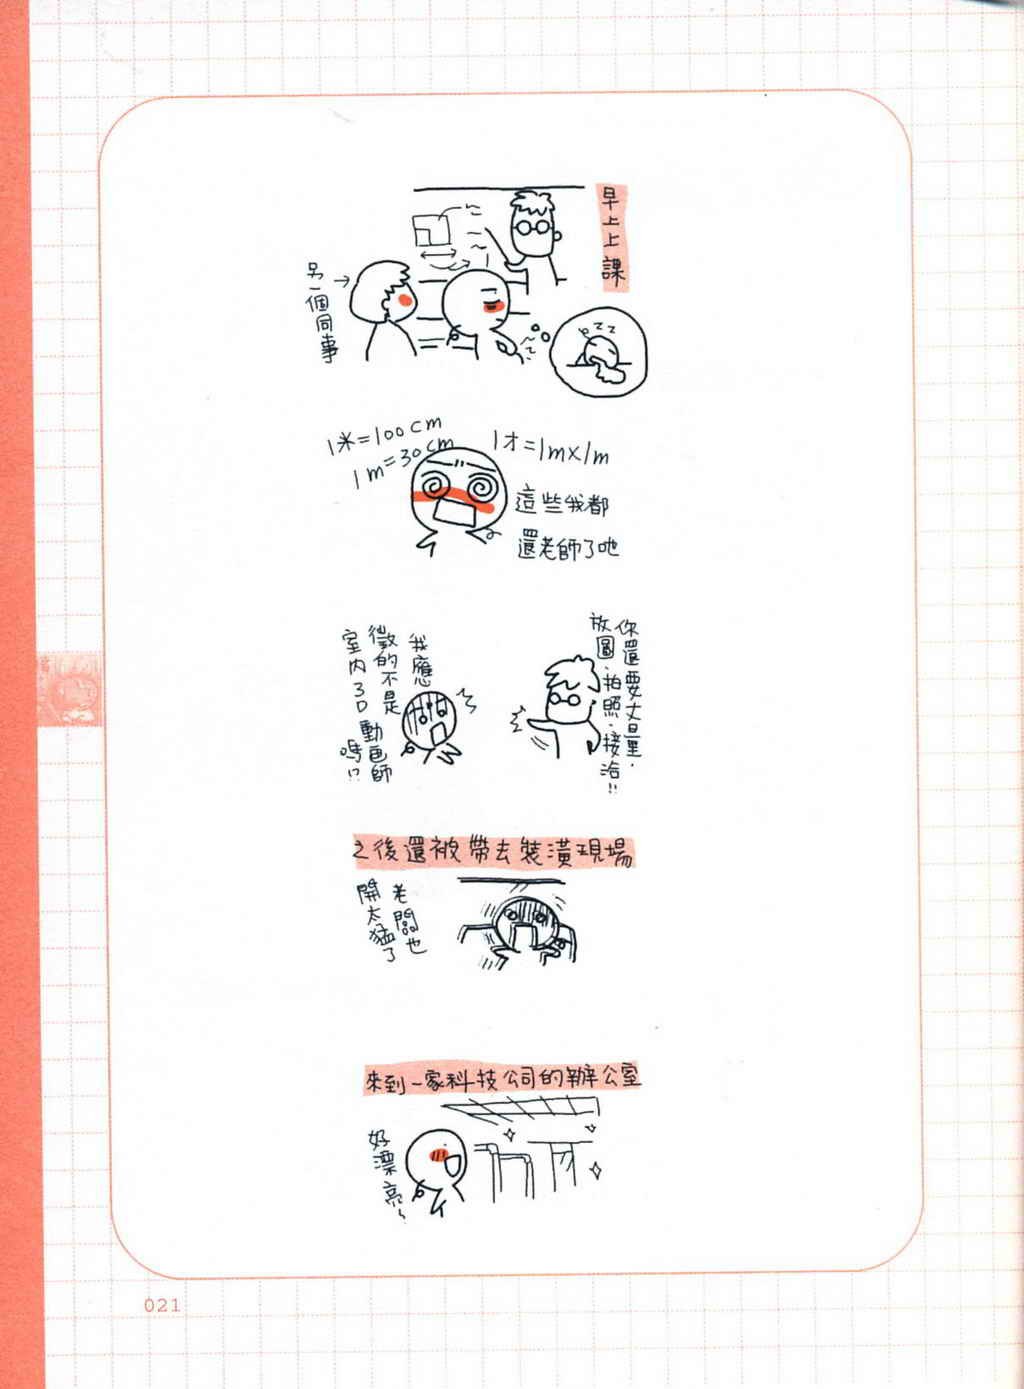 早上上課
另一個同事
zzz
1米=100cm
1m=30cm
1才=1m×1m
這些我都
還老師了吔
你還要丈量.
放圖.拍照.接洽!!
我應
徵的不是
室內3D動画師
嗎!?
之後還被帶去裝潢現場
老闆也
開太猛了
來到一家科技公司的辦公室
好漂亮~
021